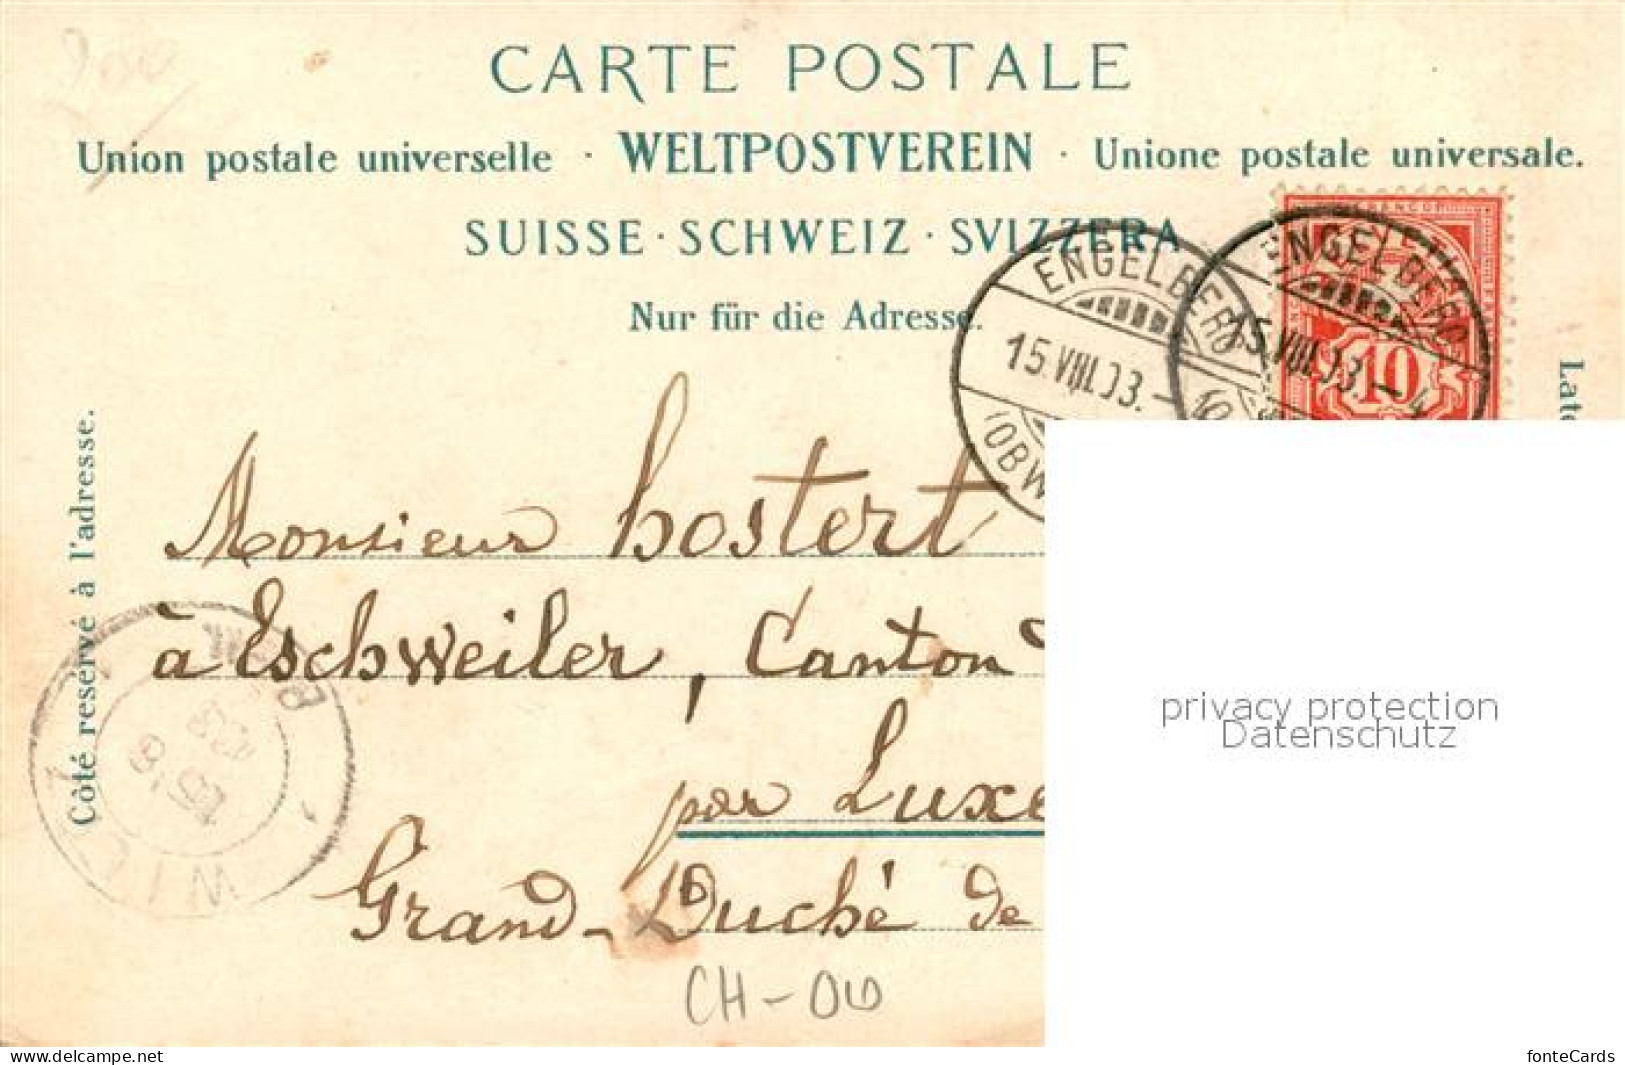 CARTE POSTALE
Union postale universelle · WELTPOSTVEREIN · Unione postale universale.
SUISSE · SCHWEIZ · SVIZZERA
Nur für die Adresse.
ENGELBERG
15.VIII.03.–
(OBW
ENGELBERG
15.VIII.03.–4
FRANCO
10
Côté reservé à l'adresse.
Monsieur Hostert
à Eschweiler, Canton
par Luxe
Grand-Duché de
CH-06
privacy protection
Datenschutz
www.delcampe.net
fonteCards